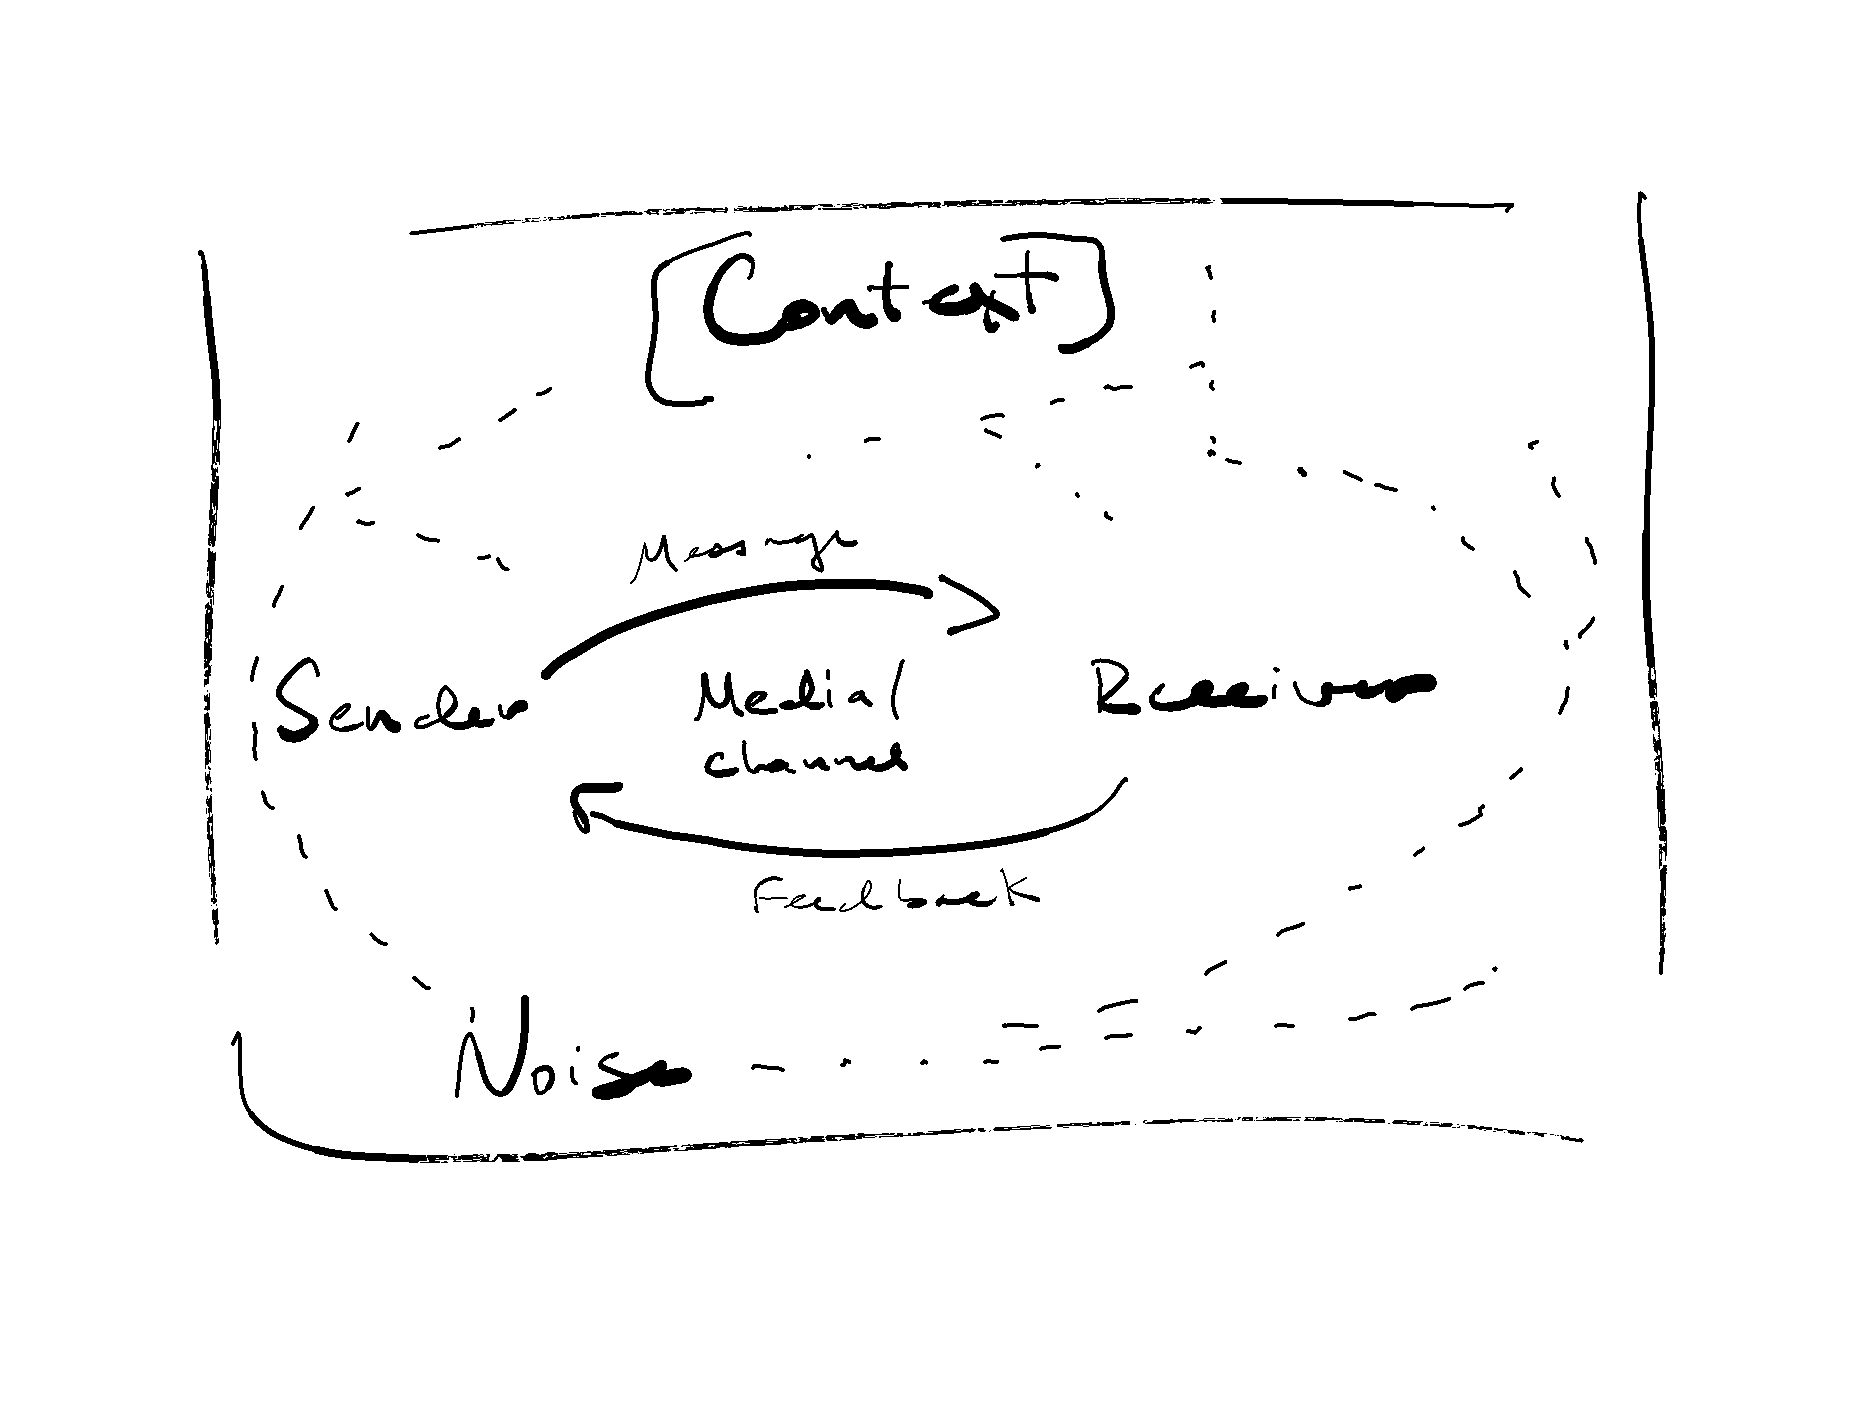 [Context]
Message
Sender
Media/
channel
Receiver
Feedback
Noise